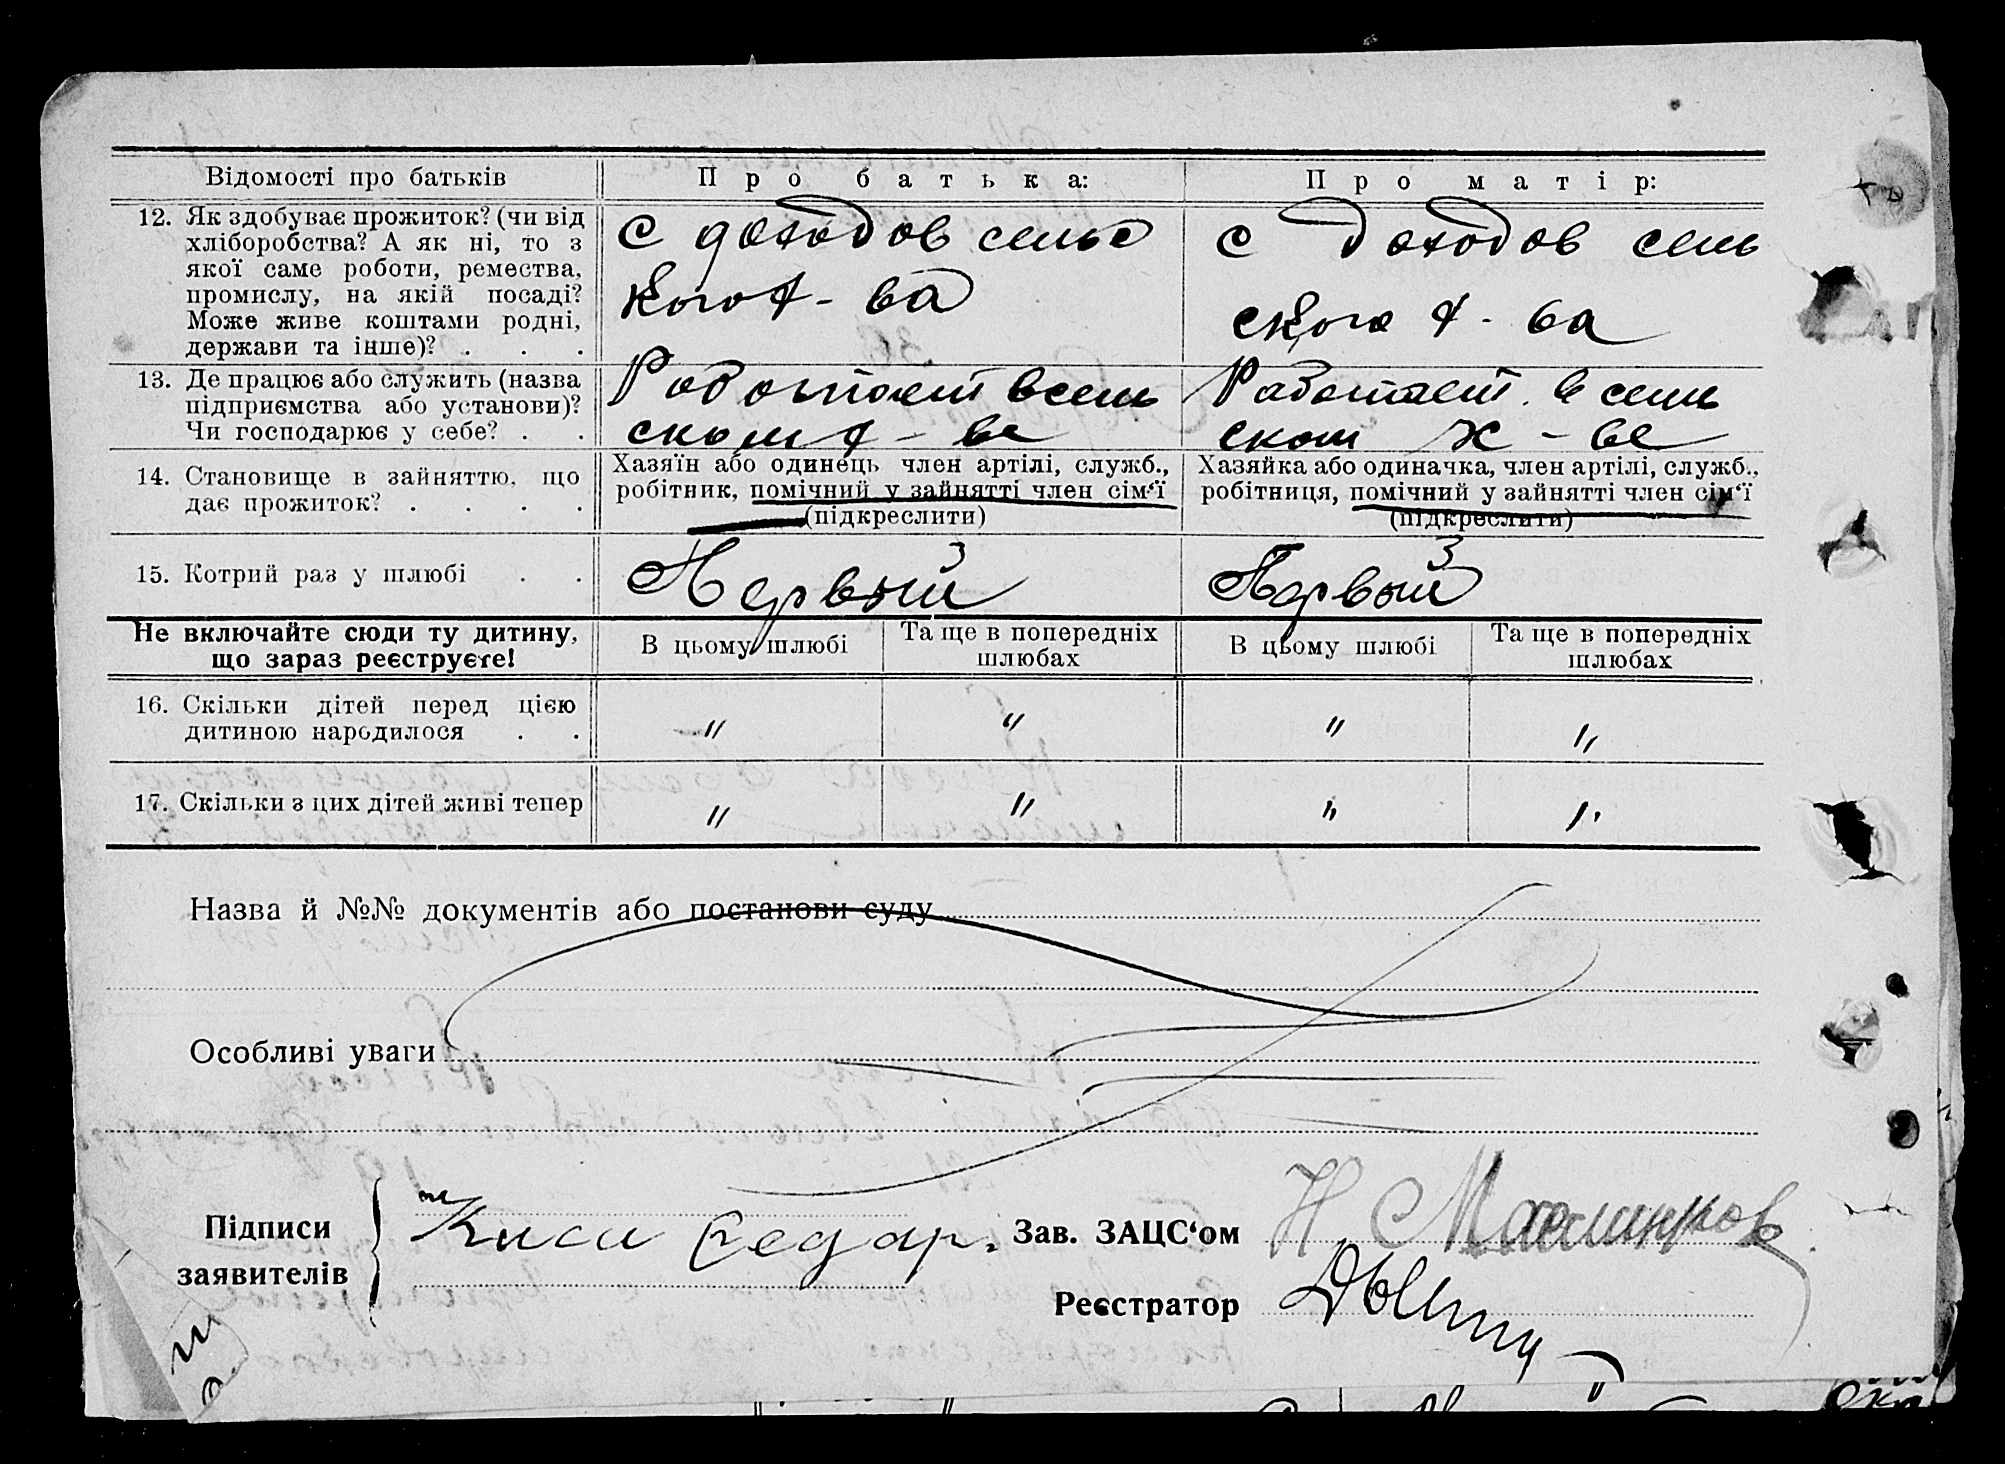 Відомості про батьків
Про батька:
Про матір:
12. Як здобуває прожиток? (чи від
хліборобства? А як ні, то з
якої саме роботи, ремества,
промислу, на якій посаді?
Може живе коштами родні,
держави та інше)? . . .
с доходов сельс
кого х-ва
с доходов сель
ского х-ва
13. Де працює або служить (назва
підприємства або установи)?
Чи господарює у себе? . .
Работает в сель
ском х-ве
Работает в сель
ском х-ве
14. Становище в зайняттю, що
дає прожиток? . . . .
Хазяїн або одинець член артілі, служб.,
робітник, помічний у зайнятті член сім‘ї
(підкреслити)
Хазяйка або одиначка, член артілі, служб.,
робітниця, помічний у зайнятті член сім‘ї
(підкреслити)
15. Котрий раз у шлюбі . .
Первый 3
Первый 3
Не включайте сюди ту дитину,
що зараз реєструєте!
В цьому шлюбі
Та ще в попередніх
шлюбах
В цьому шлюбі
Та ще в попередніх
шлюбах
16. Скільки дітей перед цією
дитиною народилося . .
" " " "
17. Скільки з цих дітей живі тепер
" " " "
Назва й №№ документів або постанови суду
Особливі уваги
Підписи
заявителів
Зав. ЗАЦС‘ом
Н
Реєстратор